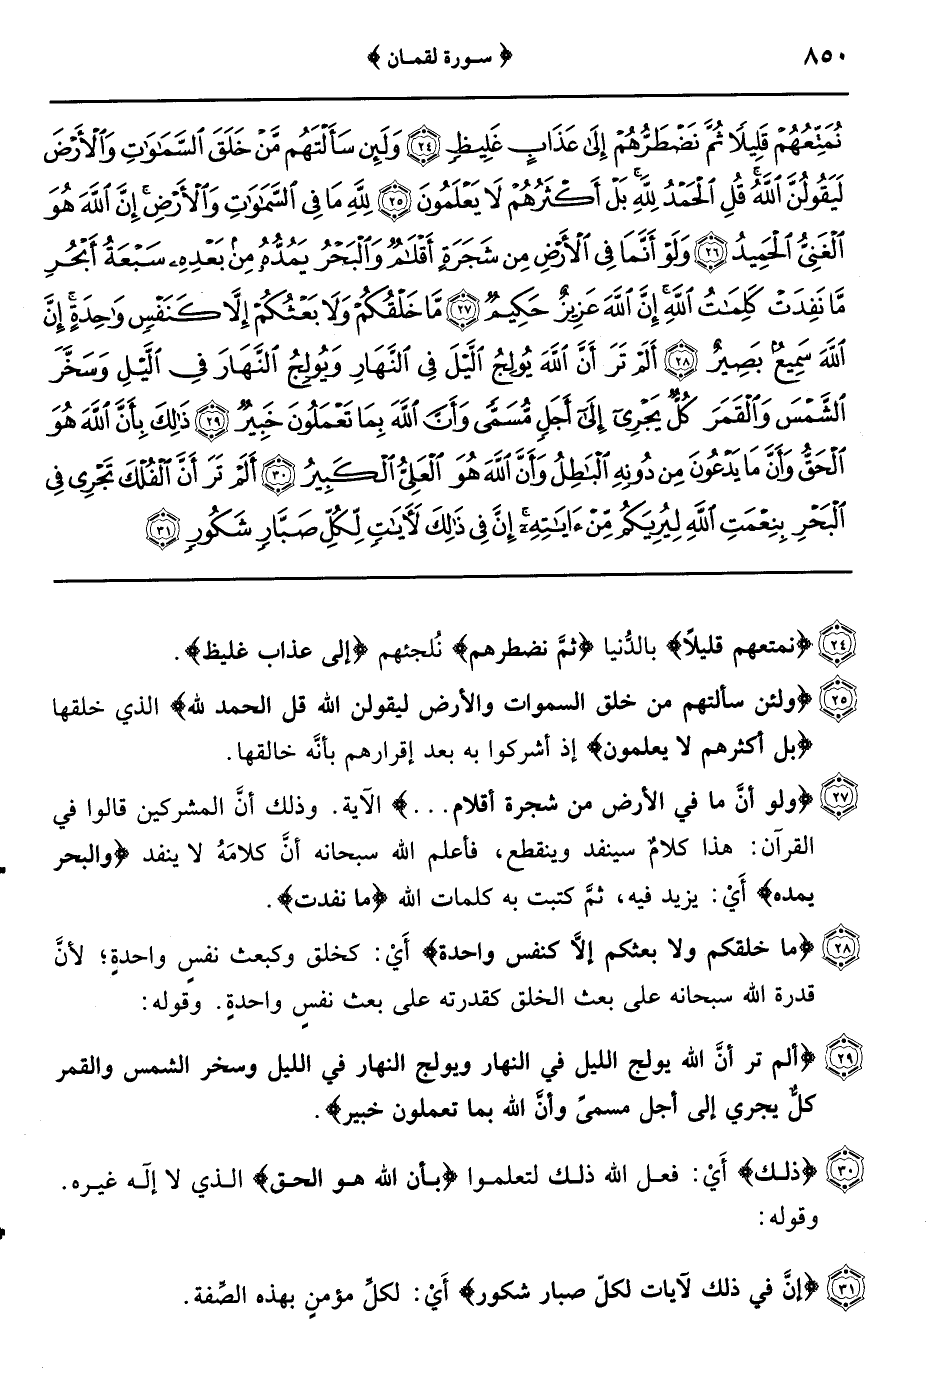 ٨٥٠ ﴿ سورة لقمان ﴾
نُمَتِّعُهُمْ قَلِيلًا ثُمَّ نَضْطَرُّهُمْ إِلَىٰ عَذَابٍ غَلِيظٍ ٢٤ وَلَئِن سَأَلْتَهُم مَّنْ خَلَقَ السَّمَٰوَٰتِ وَالْأَرْضَ
لَيَقُولُنَّ اللَّهُ ۚ قُلِ الْحَمْدُ لِلَّهِ ۚ بَلْ أَكْثَرُهُمْ لَا يَعْلَمُونَ ٢٥ لِلَّهِ مَا فِي السَّمَٰوَٰتِ وَالْأَرْضِ ۚ إِنَّ اللَّهَ هُوَ
الْغَنِيُّ الْحَمِيدُ ٢٦ وَلَوْ أَنَّمَا فِي الْأَرْضِ مِن شَجَرَةٍ أَقْلَٰمٌ وَالْبَحْرُ يَمُدُّهُ مِنۢ بَعْدِهِۦ سَبْعَةُ أَبْحُرٍ
مَّا نَفِدَتْ كَلِمَٰتُ اللَّهِ ۗ إِنَّ اللَّهَ عَزِيزٌ حَكِيمٌ ٢٧ مَّا خَلْقُكُمْ وَلَا بَعْثُكُمْ إِلَّا كَنَفْسٍ وَٰحِدَةٍ ۗ إِنَّ
اللَّهَ سَمِيعٌۢ بَصِيرٌ ٢٨ أَلَمْ تَرَ أَنَّ اللَّهَ يُولِجُ الَّيْلَ فِي النَّهَارِ وَيُولِجُ النَّهَارَ فِي الَّيْلِ وَسَخَّرَ
الشَّمْسَ وَالْقَمَرَ كُلٌّ يَجْرِيٓ إِلَىٰٓ أَجَلٍ مُّسَمًّى وَأَنَّ اللَّهَ بِمَا تَعْمَلُونَ خَبِيرٌ ٢٩ ذَٰلِكَ بِأَنَّ اللَّهَ هُوَ
الْحَقُّ وَأَنَّ مَا يَدْعُونَ مِن دُونِهِ الْبَٰطِلُ وَأَنَّ اللَّهَ هُوَ الْعَلِيُّ الْكَبِيرُ ٣٠ أَلَمْ تَرَ أَنَّ الْفُلْكَ تَجْرِي فِي
الْبَحْرِ بِنِعْمَتِ اللَّهِ لِيُرِيَكُم مِّنْ ءَايَٰتِهِۦٓ ۚ إِنَّ فِي ذَٰلِكَ لَءَايَٰتٍ لِّكُلِّ صَبَّارٍ شَكُورٍ ٣١
٢٤ ﴿نمتعهم قليلاً﴾ بالدُّنيا ﴿ثمَّ نضطرهم﴾ نُلجئهم ﴿إلى عذاب غليظ﴾.
٢٥ ﴿ولئن سألتهم من خلق السموات والأرض ليقولن الله قل الحمد لله﴾ الذي خلقها
﴿بل أكثرهم لا يعلمون﴾ إذ أشركوا به بعد إقرارهم بأنَّه خالقها.
٢٧ ﴿ولو أنَّ ما في الأرض من شجرة أقلام...﴾ الآية. وذلك أنَّ المشركين قالوا في
القرآن: هذا كلامٌ سينفد وينقطع، فأعلم الله سبحانه أنَّ كلامَهُ لا ينفد ﴿والبحر
يمده﴾ أَيْ: يزيد فيه، ثمَّ كتبت به كلمات الله ﴿ما نفدت﴾.
٢٨ ﴿ما خلقكم ولا بعثكم إلاَّ كنفس واحدة﴾ أَيْ: كخلق وكبعث نفسٍ واحدةٍ؛ لأنَّ
قدرة الله سبحانه على بعث الخلق كقدرته على بعث نفسٍ واحدةٍ. وقوله:
٢٩ ﴿ألم تر أنَّ الله يولج الليل في النهار ويولج النهار في الليل وسخر الشمس والقمر
كلٌّ يجري إلى أجل مسمىً وأنَّ الله بما تعملون خبير﴾.
٣٠ ﴿ذلك﴾ أَيْ: فعل الله ذلك لتعلموا ﴿بأن الله هو الحق﴾ الذي لا إلٰه غيره.
وقوله:
٣١ ﴿إنَّ في ذلك لآيات لكلّ صبار شكور﴾ أَيْ: لكلِّ مؤمنٍ بهذه الصِّفة.